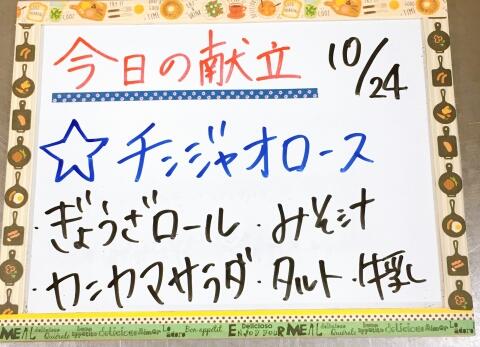 今日の献立 10/24
☆チンジャオロース
・ぎょうざロール・みそ汁
・カニカマサラダ・タルト・牛乳
MEAL
Delicioso
ENJOY YOUR MEAL
Bon appetit